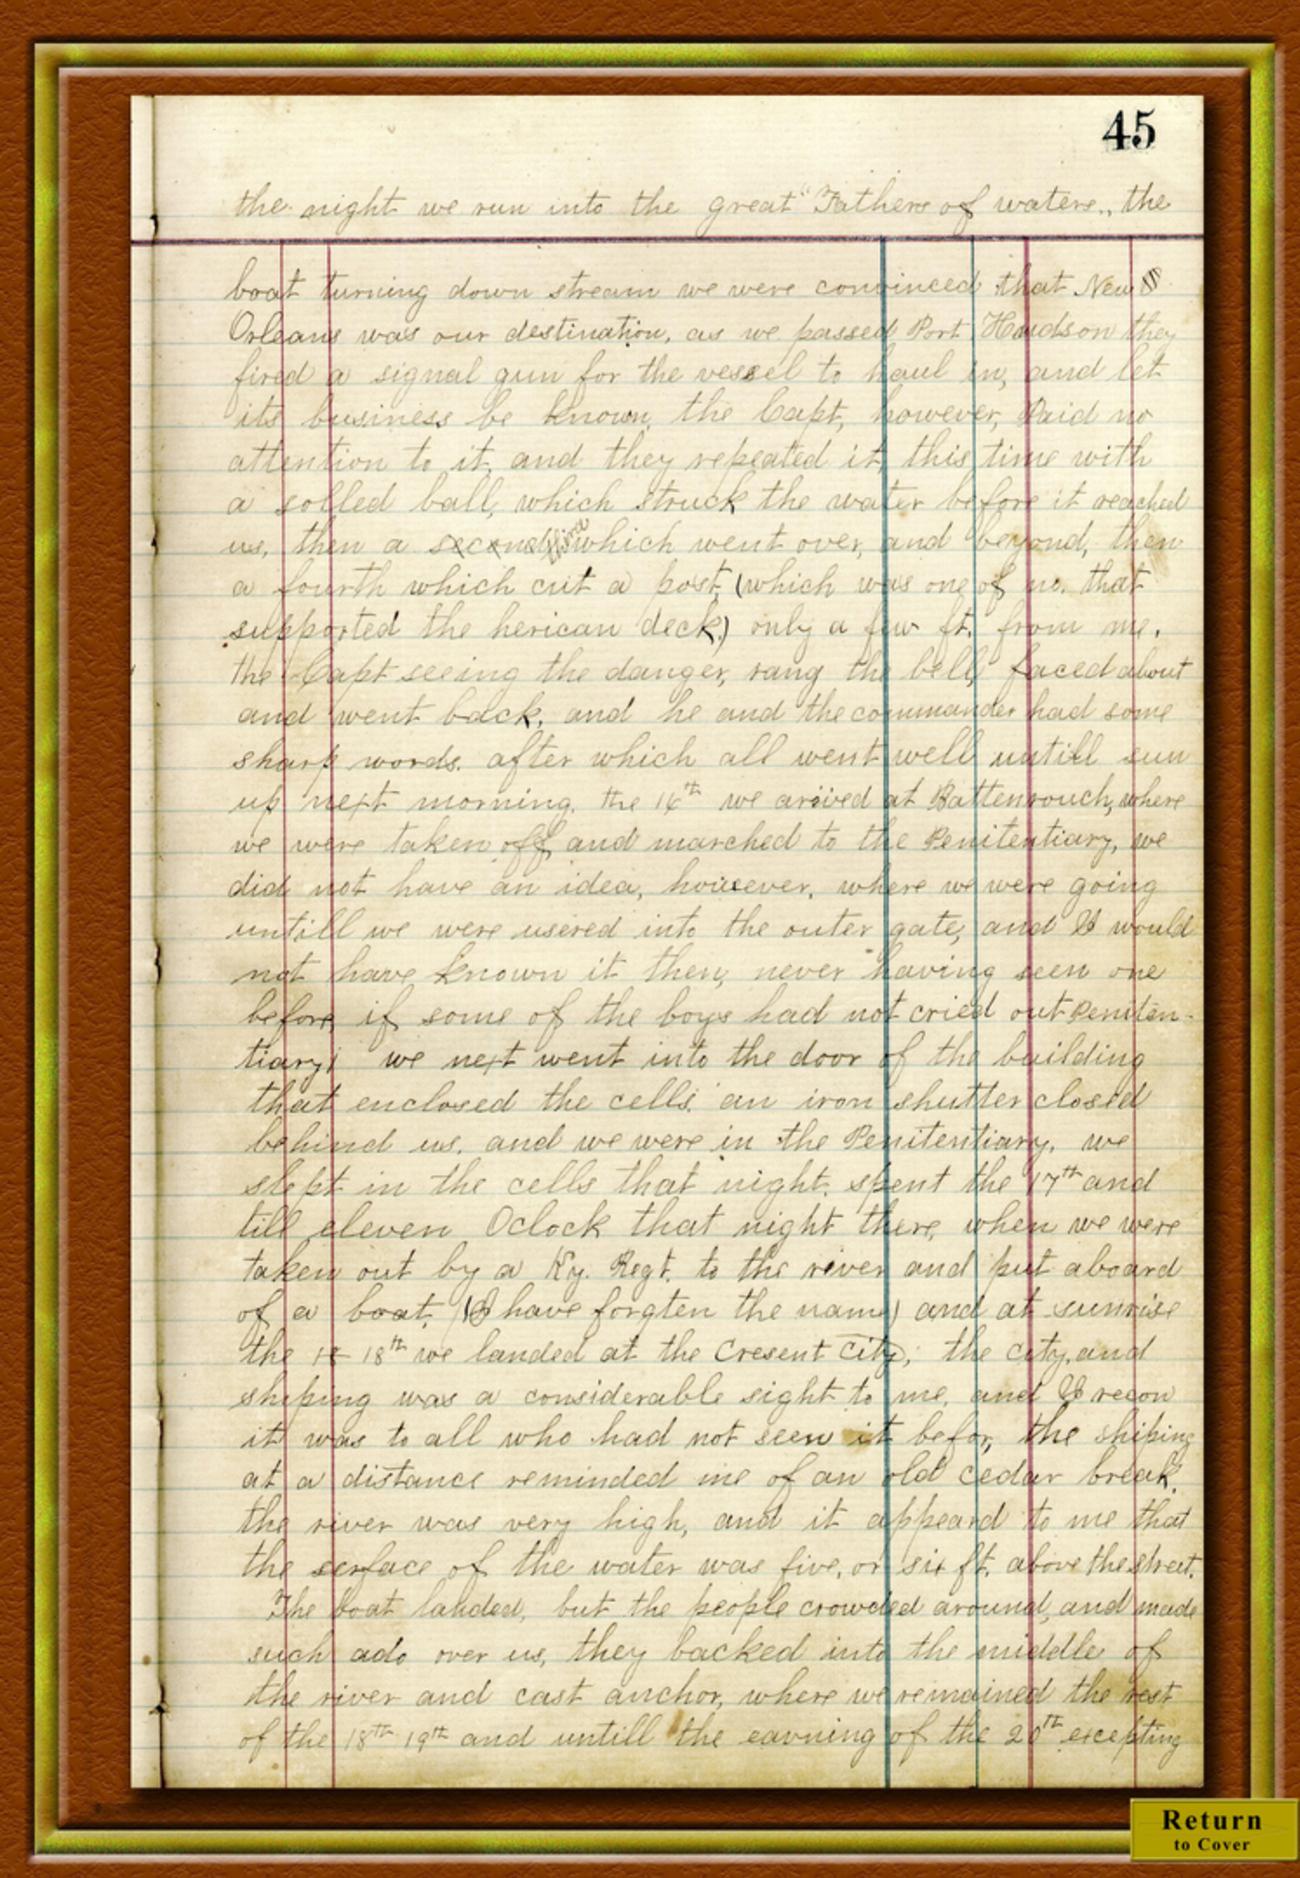 45
the night we run into the great "Fathers of waters", the
boat turning down stream we were convinced that New
Orleans was our destination, as we passed Port Hudson they
fired a signal gun for the vessel to haul in, and let
its business be known, the Capt, however, Paid no
attention to it, and they repeated it, this time with
a solled ball, which struck the water before it reached
us, then a second which went over, and beyond, then
a fourth which cut a post, (which was one of no. that
supported the herican deck) only a few ft. from me.
the Capt seeing the danger, rang the bell, faced about
and went back, and he and the commander had some
sharp words. after which all went well untill sun
up next morning. the 16th we arived at Battenrouch, where
we were taken off, and marched to the Penitentiary, we
did not have an idea, however, where we were going
untill we were usered into the outer gate, and I would
not have known it then, never having seen one
before if some of the boys had not cried out Peniten-
tiary; we next went into the door of the building
that enclosed the cells. an iron shutter closed
behind us, and we were in the Penitentiary. we
slept in the cells that night. spent the 17th and
till eleven Oclock that night there, when we were
taken out by a Ky. Regt. to the river and put aboard
of a boat, (I have forgten the name) and at sunrise
the 18th we landed at the Cresent City; the city, and
shiping was a considerable sight to me, and I recon
it was to all who had not seen it befor, the shiping
at a distance reminded me of an old cedar break.
the river was very high, and it appeard to me that
the serface of the water was five, or six ft. above the street.
The boat landed, but the people crowded around, and made
such ado over us, they backed into the middle of
the river and cast anchor, where we remained the rest
of the 18th 19th and untill the eavning of the 20th excepting
Return
to Cover